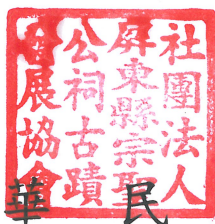 社團法人
屏東縣宗聖
公祠古蹟
發展協會
華 民